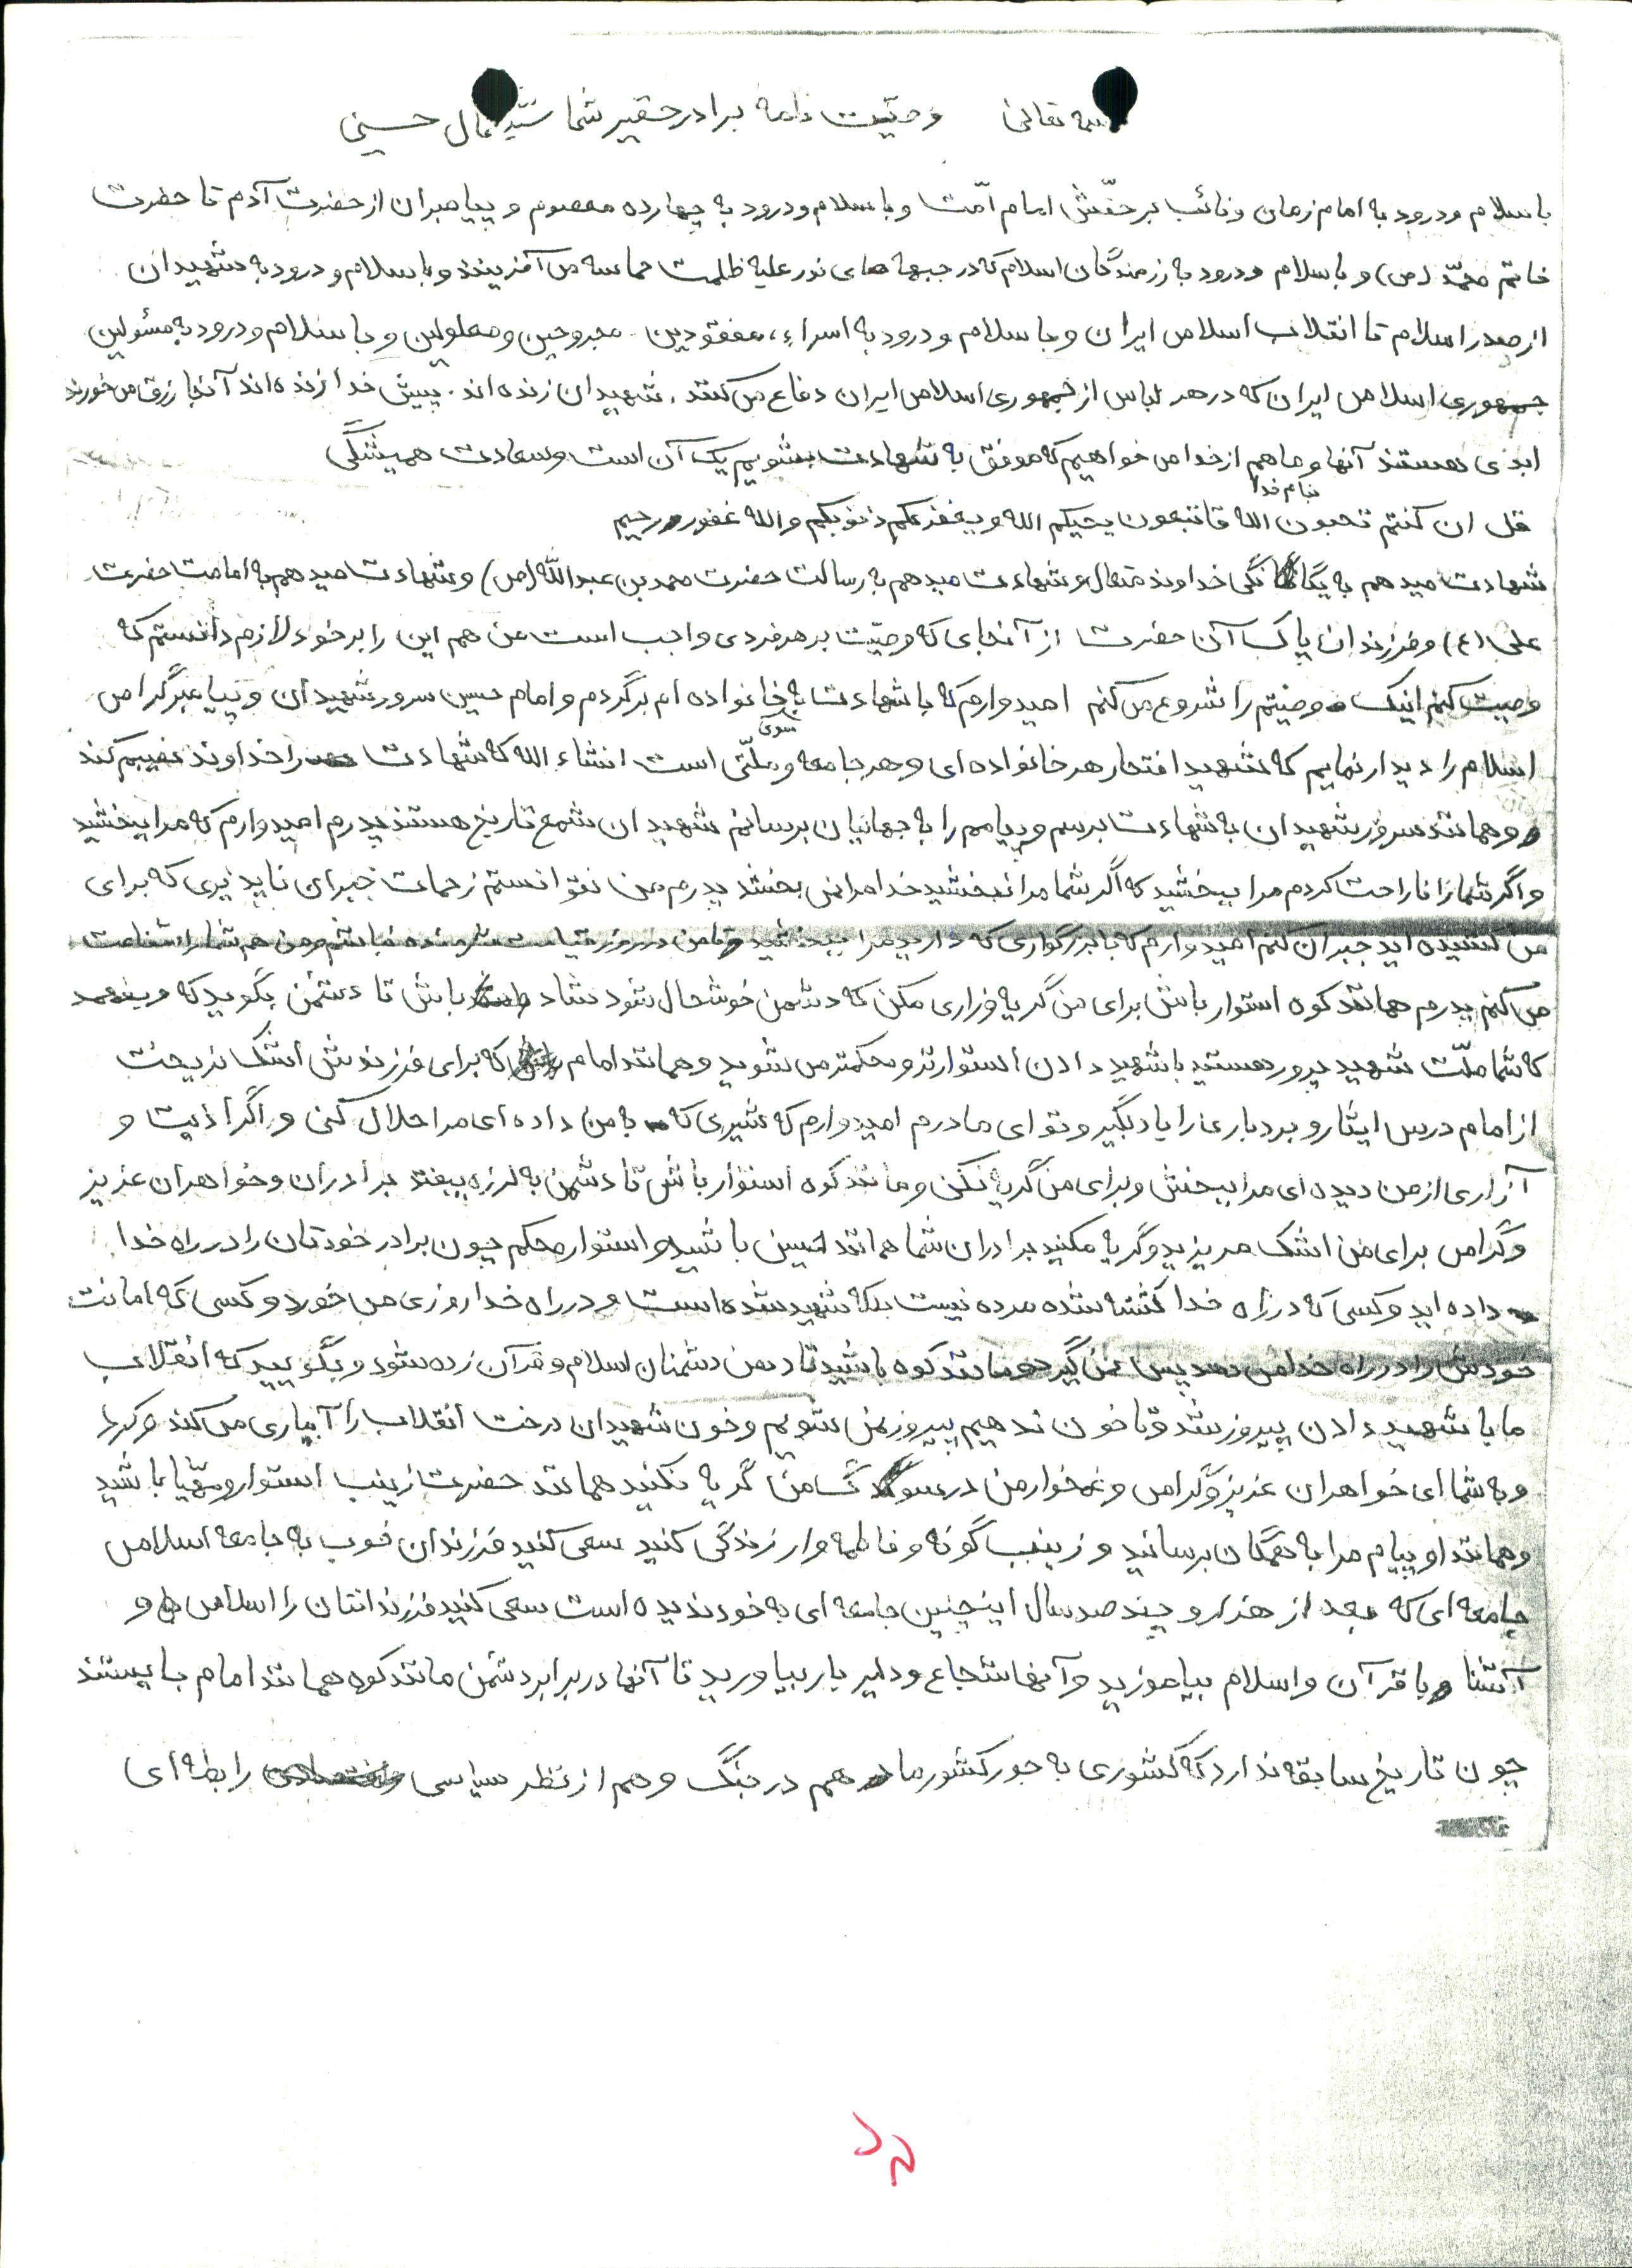 بسمه تعالی وصیّت نامه برادر حقیر شما سیّد حسینی
باسلام ودرود به امام زمان ونائب برحقّش امام امّت و باسلام ودرود به چهارده معصوم و پیامبران از حضرت آدم تا حضرت
خاتم محمّد (ص) و باسلام ودرود به رزمندگان اسلام که در جبهه های نور علیه ظلمت حماسه می آفرینند و باسلام و درود به شهیدان
از صدر اسلام تا انقلاب اسلامی ایران و باسلام و درود به اسراء، مفقودین - مجروحین و معلولین و با سلام و درود به مسئولین
جمهوری اسلامی ایران که در هر لباس از جمهوری اسلامی ایران دفاع می کنند. شهیدان زنده اند. پیش خدا زنده اند آنجا رزق می خورند
ابدی هستند آنها و ما هم از خدا می خواهیم که موفق به شهادت بشویم یک آن است و سعادت همیشگی
بنام خدا
قل ان کنتم تحبون الله فاتبعون یحبکم الله و یغفر لکم ذنوبکم والله غفور رحیم
شهادت میدهم به یگانگی خداوند متعال و شهادت میدهم به رسالت حضرت محمد بن عبدالله (ص) و شهادت میدهم به امامت حضرت
علی (ع) و فرزندان پاک آن حضرت از آنجای که وصیّت بر هر فردی واجب است من هم این را بر خود لازم دانستم که
وصیت کنم اینک وصیتم را شروع می کنم امیدوارم که با شهادت به سوی خانواده ام برگردم و امام حسین سرور شهیدان و پیامبر گرامی
اسلام را دیدار نمایم که شهید افتخار هر خانواده ای و هر جامعه و ملّتی است انشاء الله که شهادت را خداوند نصیبم کند
و همانند سرور شهیدان به شهادت برسم و پیامم را به جهانیان برسانم شهیدان شمع تاریخ هستند پدرم امیدوارم که مرا ببخشید
و اگر شما را ناراحت کردم مرا ببخشید که اگر شما مرا نبخشید خدا مرا نمی بخشد پدرم من نتوانستم زحمات جبران ناپذیری که برای
من کشیده اید جبران کنم امیدوارم که با بزرگواری که دارید مرا ببخشید تا من در روز قیامت شرمنده نباشم و من هم شما را شفاعت
می کنم پدرم همانند کوه استوار باش برای من گریه و زاری مکن که دشمن خوشحال شود شاد باش تا دشمن بگوید که
که شما ملّت شهید پرور هستید با شهید دادن استوارتر و محکمتر می شوید و همانند امام که برای فرزندش اشک نریخت
از امام درس ایثار و بردباری را یاد بگیر و تو ای مادرم امیدوارم که شیری که به من داده ای مرا حلال کنی و اگر اذیت و
آزاری از من دیده ای مرا ببخش و برای من گریه نکن و مانند کوه استوار باش تا دشمن به لرزه بیفتد برادران و خواهران عزیز
و گرامی برای من اشک مریزید و گریه مکنید برادران شما همانند حسین باشید و استوار و محکم چون برادر خودتان را در راه خدا
داده اید و کسی که در راه خدا کشته شده مرده نیست بلکه شهید شده است و در راه خدا روزی می خورد و کسی که امانت
خودش را در راه خدا می دهد پس غمگین باشید تا دهن دشمنان اسلام و قرآن زده شود و بگویید که انقلاب
ما با شهید دادن پیروز شد و تا خون ندهیم پیروز نمی شویم و خون شهیدان درخت انقلاب را آبیاری می کند و کرد
و به شما ای خواهران عزیز و گرامی و غمخوار من در سوگ من گریه نکنید همانند حضرت زینب استوار و مهیا باشید
و همانند او پیام مرا به همگان برسانید و زینب گونه و فاطمه وار زندگی کنید سعی کنید فرزندان خوب به جامعه اسلامی
جامعه ای که بعد از هزار و چند صد سال اینچنین جامعه ای به خود ندیده است سعی کنید فرزندانتان را اسلامی و
آشنا با قرآن و اسلام بیاموزید و آنها شجاع و دلیر بار بیاورید تا آنها در برابر دشمن مانند کوه همانند امام بایستند
چون تاریخ سابقه ندارد که کشوری به جور کشور ما هم در جنگ و هم از نظر سیاسی رابطه ای